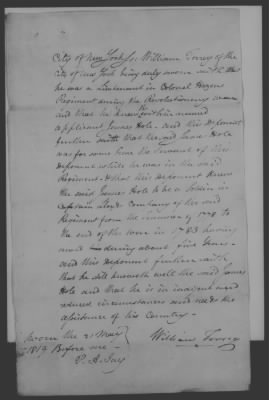 City of New York ss William Torrey of the
City of New York being duly sworn saith that
he was a Lieutenant in Colonel Hazens
Regiment during the Revolutionary war
and that he knew within named
applicant James Hole - and this deponent
further saith that the said James Hole
was for some time the servant of this
deponent while he was in the said
Regiment - & that this deponent knows
the said James Hole to be a Soldier in
Captain Company of the said
Regiment from the January of 1778 to
the end of the war in 1783 having
served during about five years -
and this deponent further saith
that he still knoweth well the said James
Hole and that he is in indigent and
reduced circumstances and needs the
assistance of his Country -
Sworn the 21 May
1819 Before me -
P. A. Jay
William Torrey